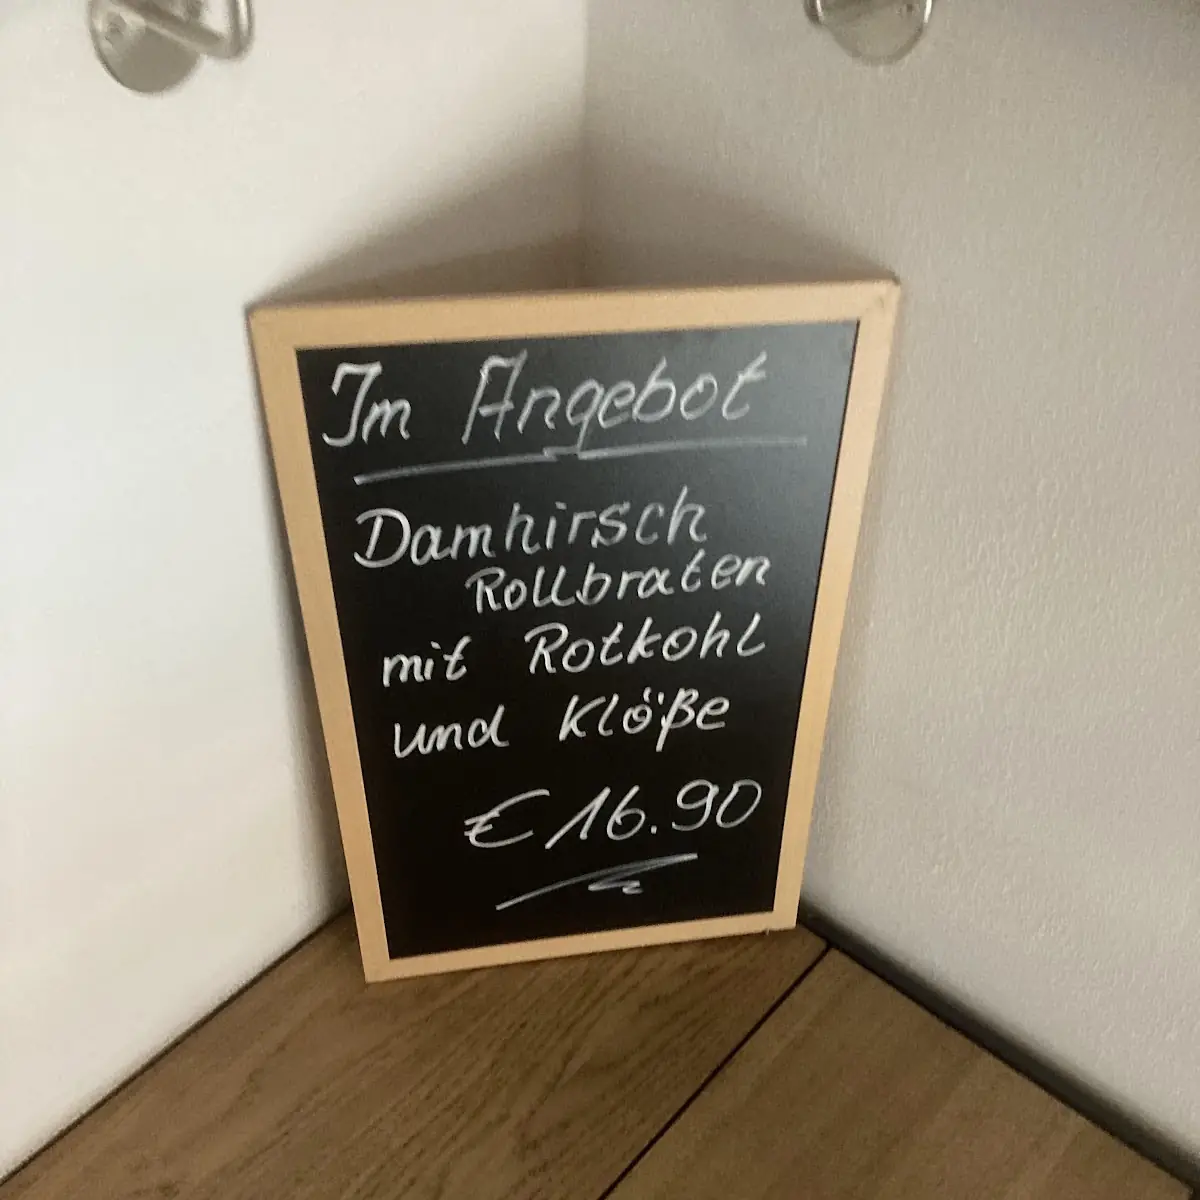 Im Angebot
Damhirsch
Rollbraten
mit Rotkohl
und Klöße
€ 16.90